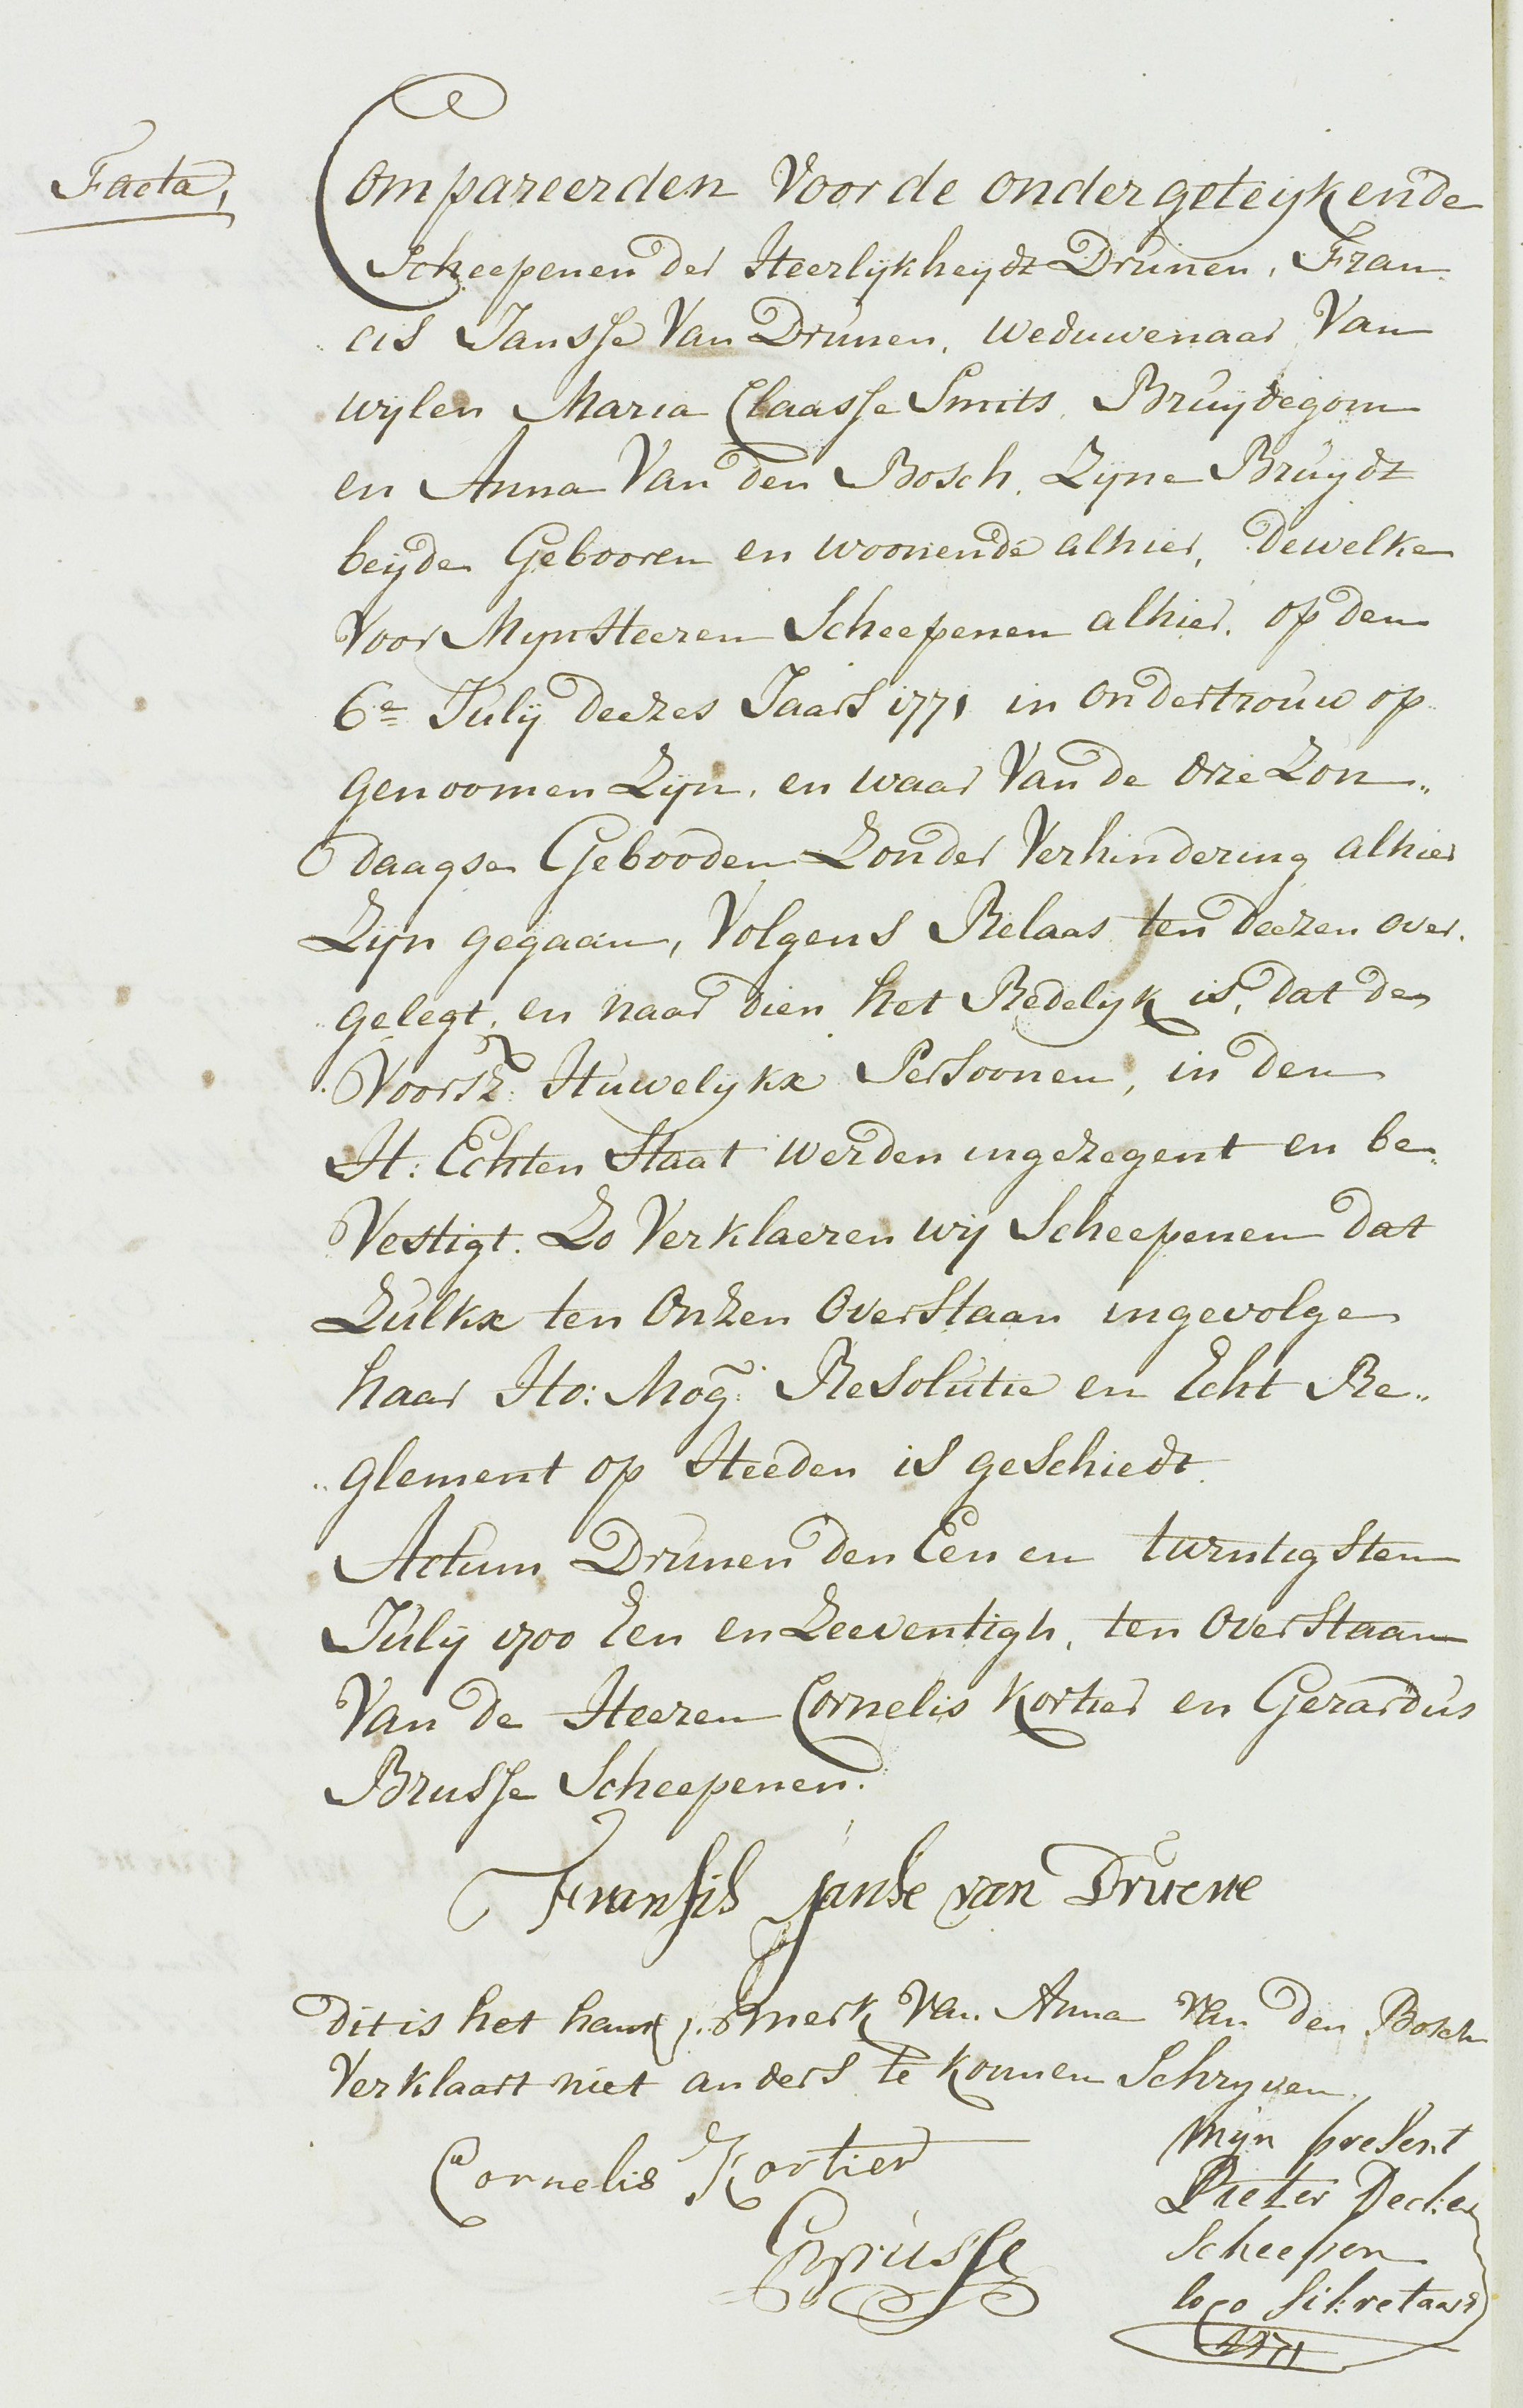 Facta,
Compareerden Voor de ondergeteijkende
Scheepenen der Heerlijkheijdt Drunen, Fran„
cis Jansse Van Drunen, weduwenaar Van
wylen Maria Claasse Smits, Bruijdegom
en Anna Van den Bosch, Zijne Bruijdt
beijde Gebooren en woonende alhier, dewelke
Voor MijnHeeren Scheepenen alhier, op den
6e Julij deezes Jaars 1771 in ondertrouw op„
genoomen Zijn, en waar Van de drie Zon„
daagse Gebooden Zonder Verhindering alhier
Zijn gegaan, Volgens Relaas ten deezen over„
gelegt, en naar dien het Redelijk is, dat de
Voorsz: Huwelijkx Persoonen, in den
H: Echten Staat werden ingezegent en be„
Vestigt. Zo Verklaeren wij Scheepenen dat
Zulkx ten Onzen OverStaan ingevolge
haar Ho: Mog: Resolutie en Echt Re„
„glement op Heeden is geschiedt.
Actum Drunen den Een en twintigsten
Julij 1700 Een en Zeeventigh, ten OverStaan
Van de Heeren Cornelis Kortier en Gerardus
Brusse Scheepenen.
Fransis Janse van Druene
dit is het hant merk Van Anna Van den Bosch
Verklaart niet anders te konnen Schrijven
Cornelis Kortier
GBrusse
Mijn present
Pieter Decker
Scheepen
loco Sikretaris
1771